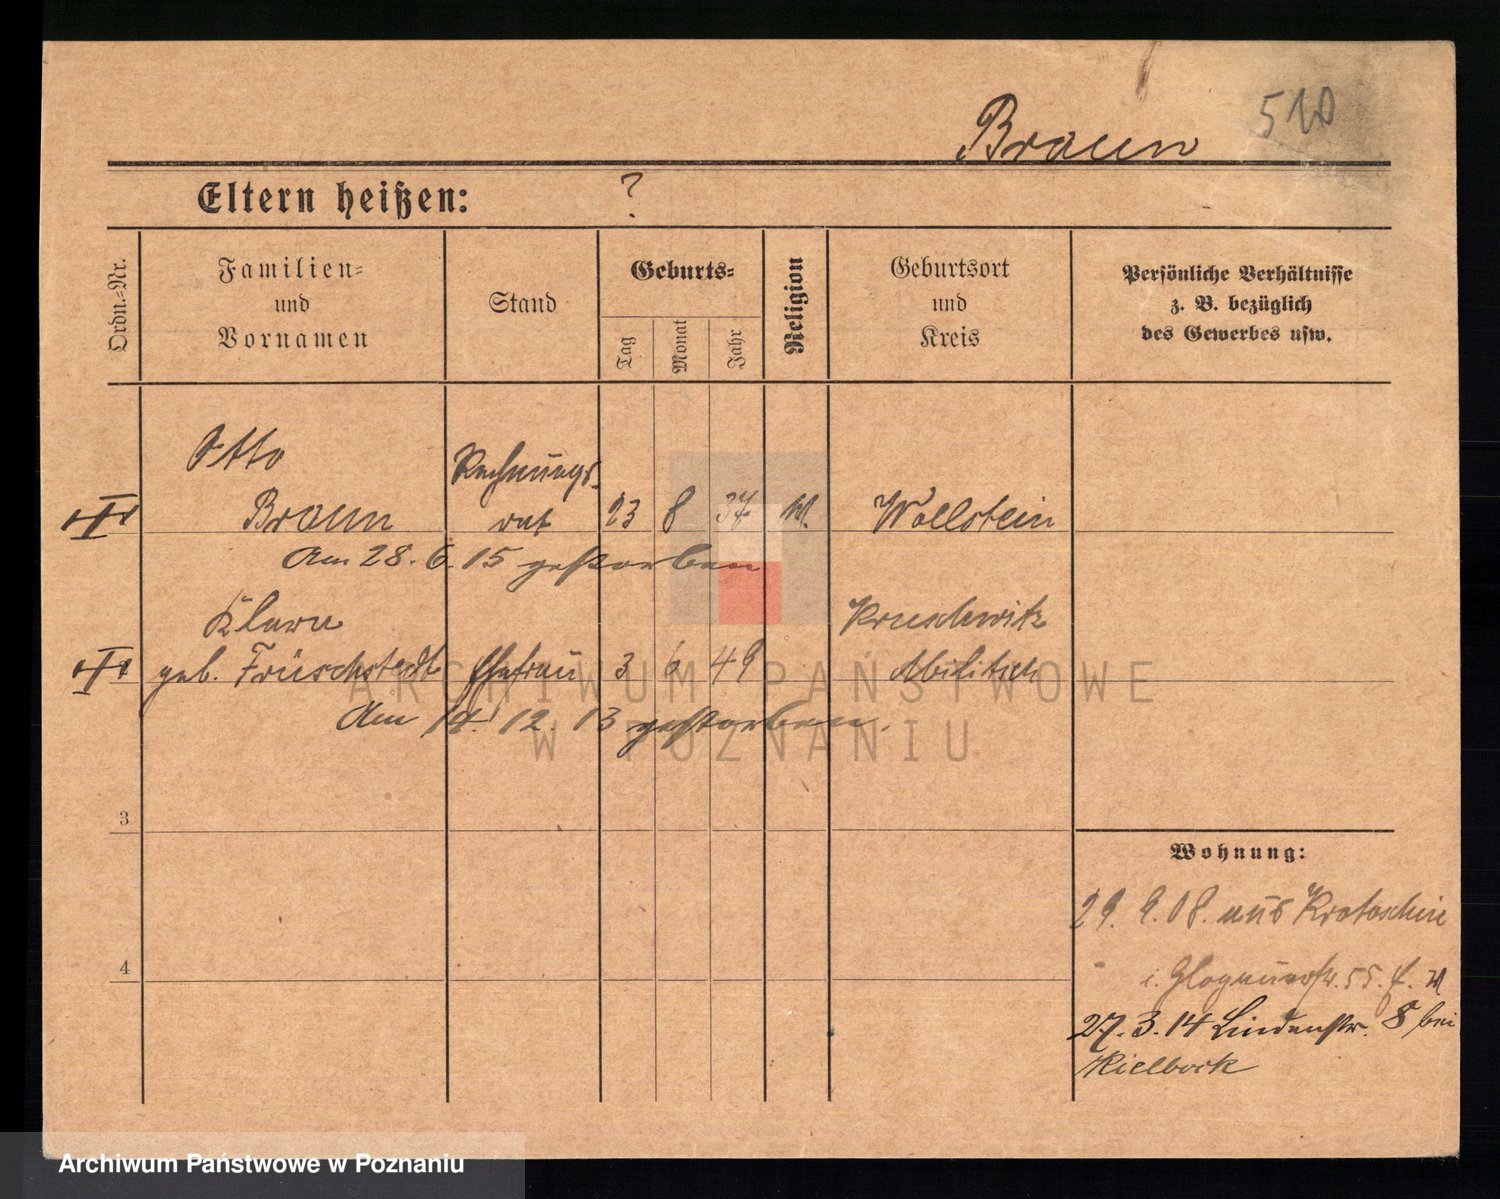 Braun 510
Eltern heißen: ?
Ordn.-Nr.
Familien-
und
Vornamen
Stand
Geburts-
Tag
Monat
Jahr
Religion
Geburtsort
und
Kreis
Persönliche Verhältnisse
z. B. bezüglich
des Gewerbes usw.
Otto
Braun
Rechnungs-
rat
23 8 37
Wollstein
Am 28. 6. 15 gestorben
Klara
geb.
Ehefrau
3 6 49
Kruschwitz
Militsch
Am 14. 12. 13 gestorben.
3
4
Wohnung:
29. 9. 08. aus Krotoschin
i. Glogauerstr. 55.
27. 3. 14 Lindenstr. 8 bei
Kielbock
ARCHIWUM PAŃSTWOWE
W POZNANIU
Archiwum Państwowe w Poznaniu